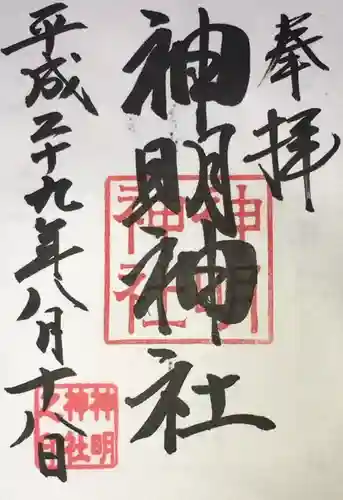 奉拝
神明神社
神明
神社
平成二十九年八月十八日
神明
神社